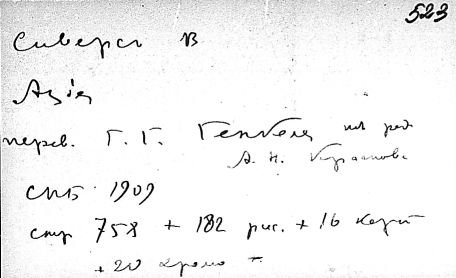 523
Сиверсъ В
Азія
перев. Г. Г. Генкеля под ред
А. Н. Краснова
СПБ 1909
стр 758 + 182 рис. + 16 карт
+ 20 хромо